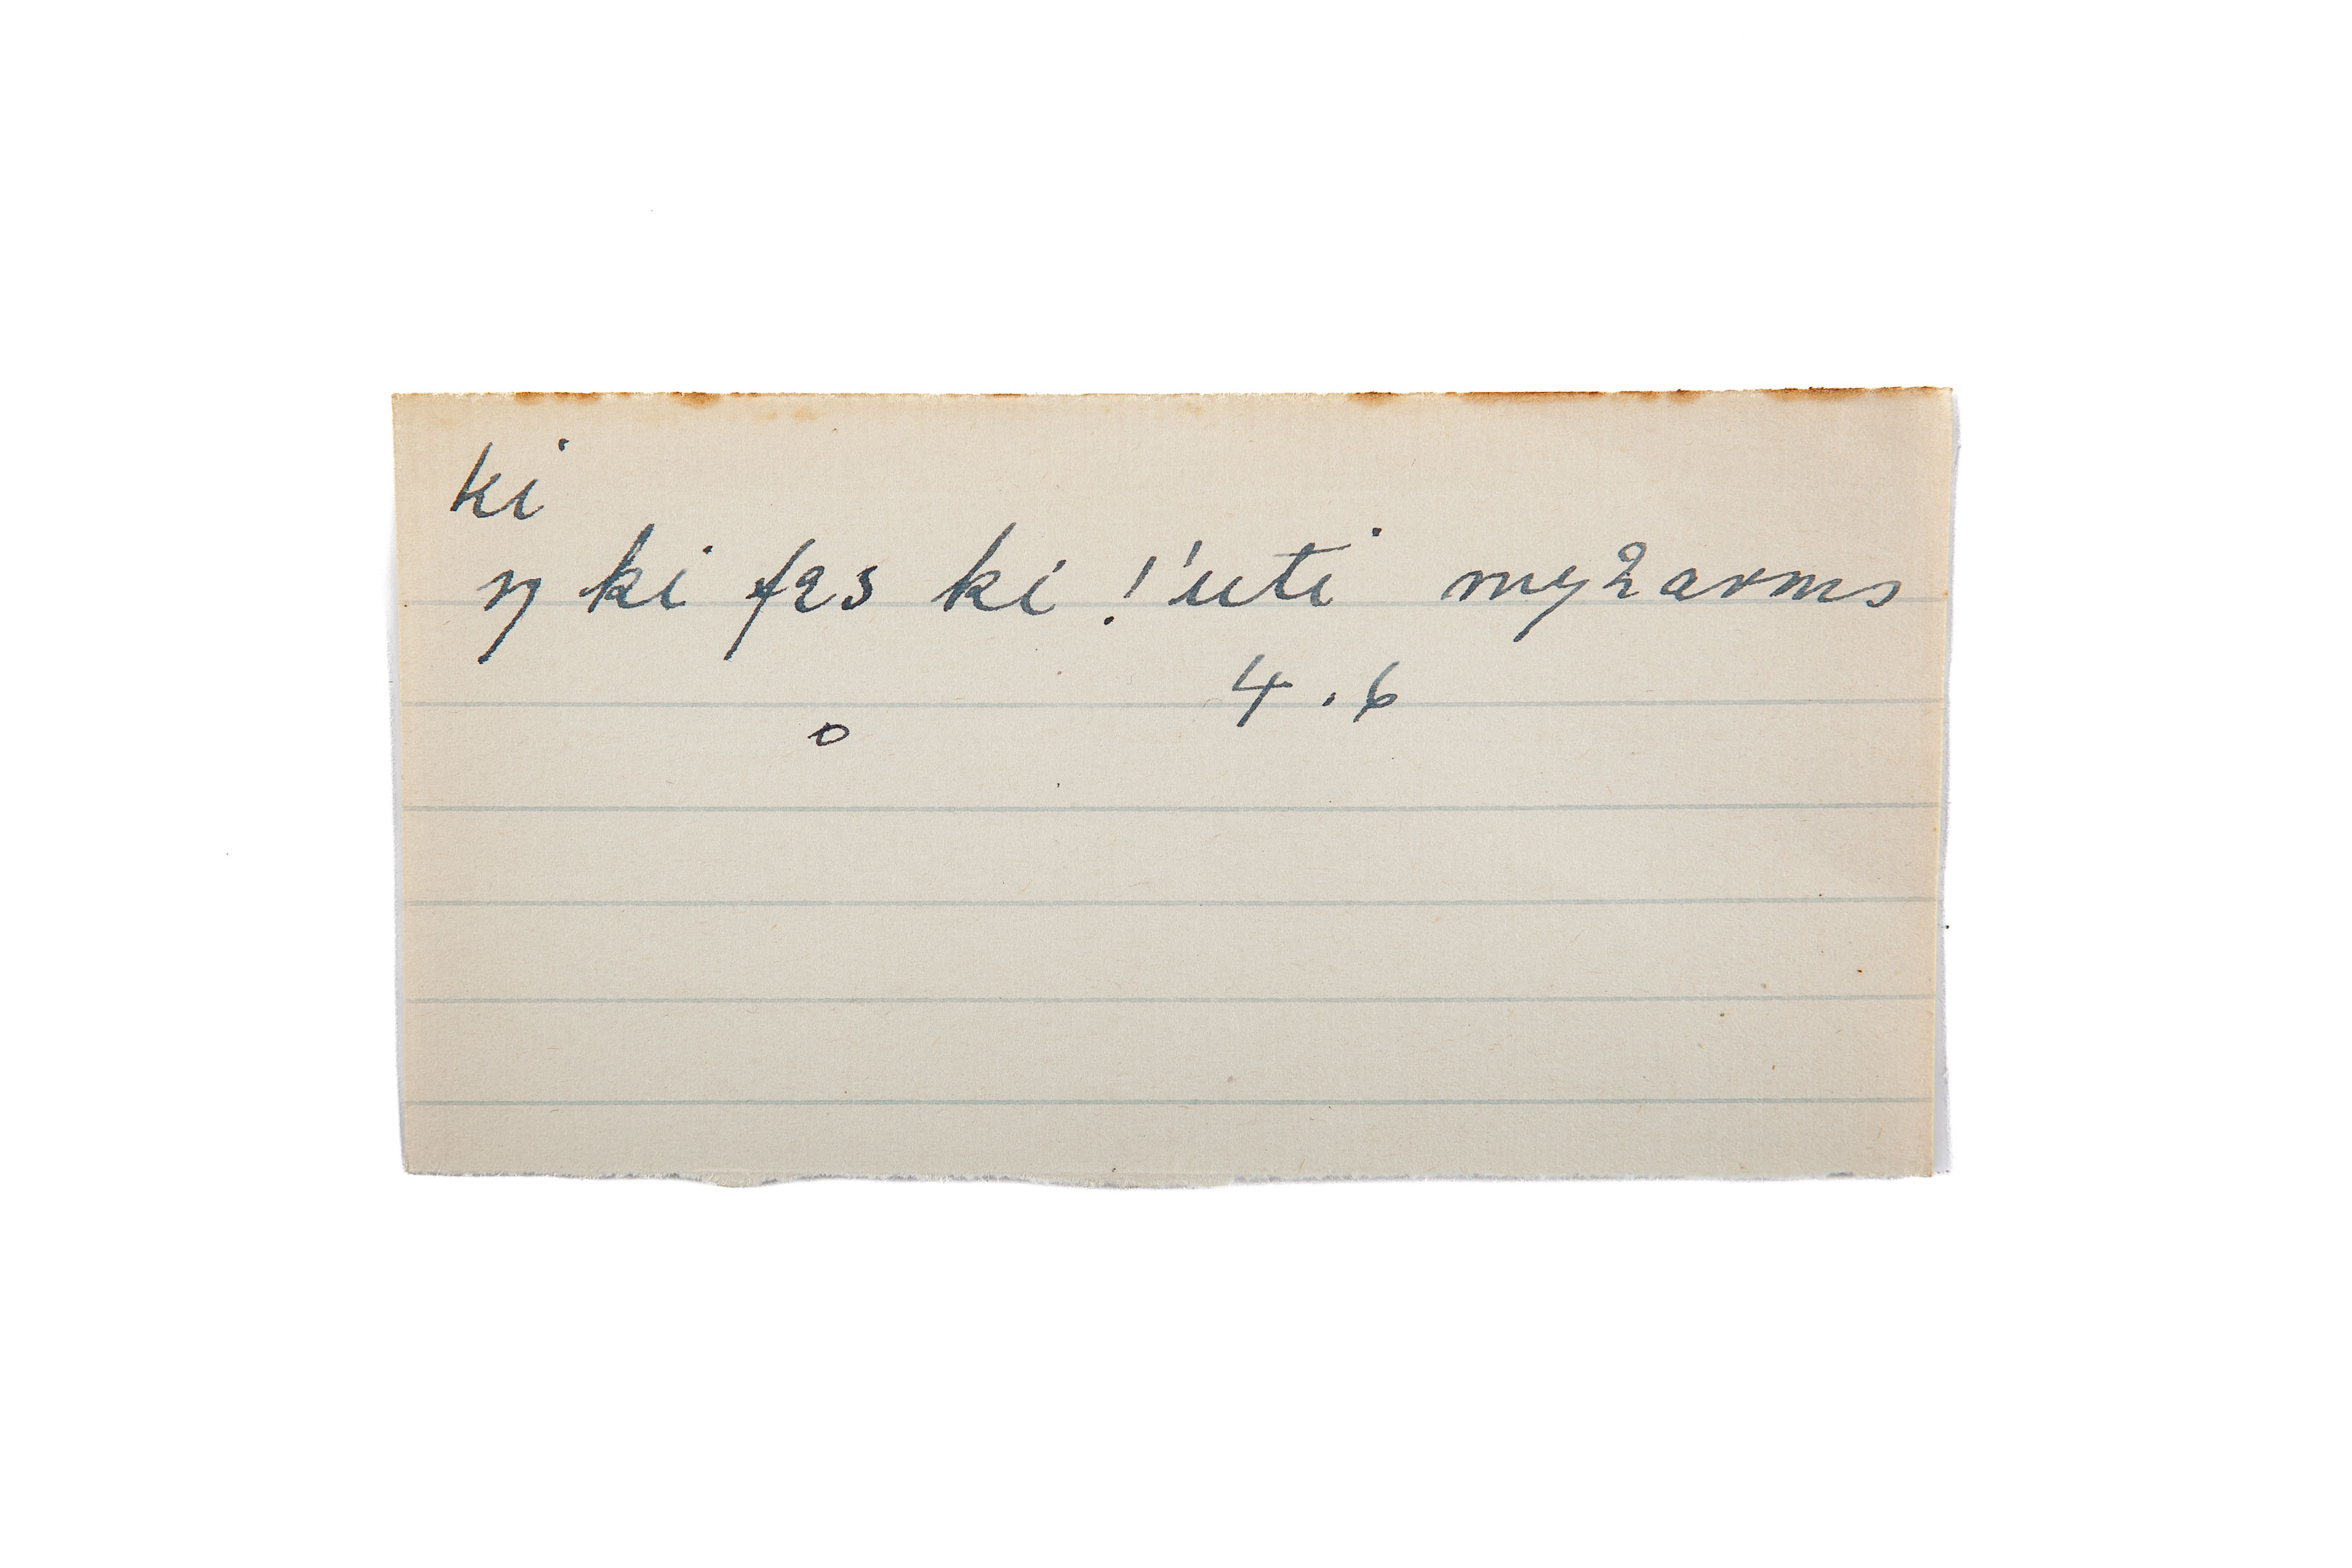 ki
ŋ ki fɜs ki !'uti my2arms
4.6
o